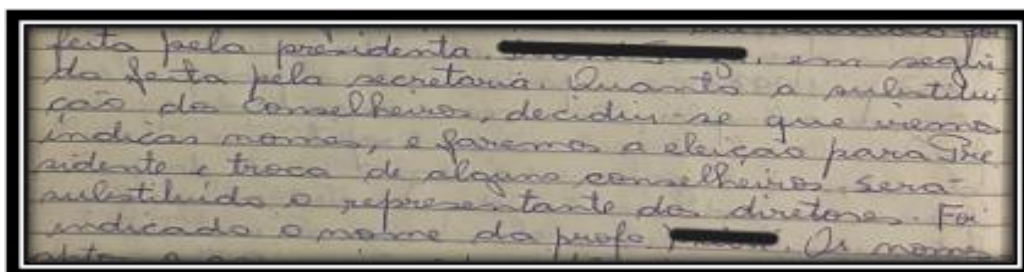 feita pela presidenta, em segui
da feita pela secretaria. Quanto a substitui
ção do Conselheiros, decidiu-se que iremos
indicas nomes, e faremos a eleição para Pre
sidente e troca de alguns conselheiros será
substituido o representante dos diretores. Foi
indicado o nome da profa. Os nomes